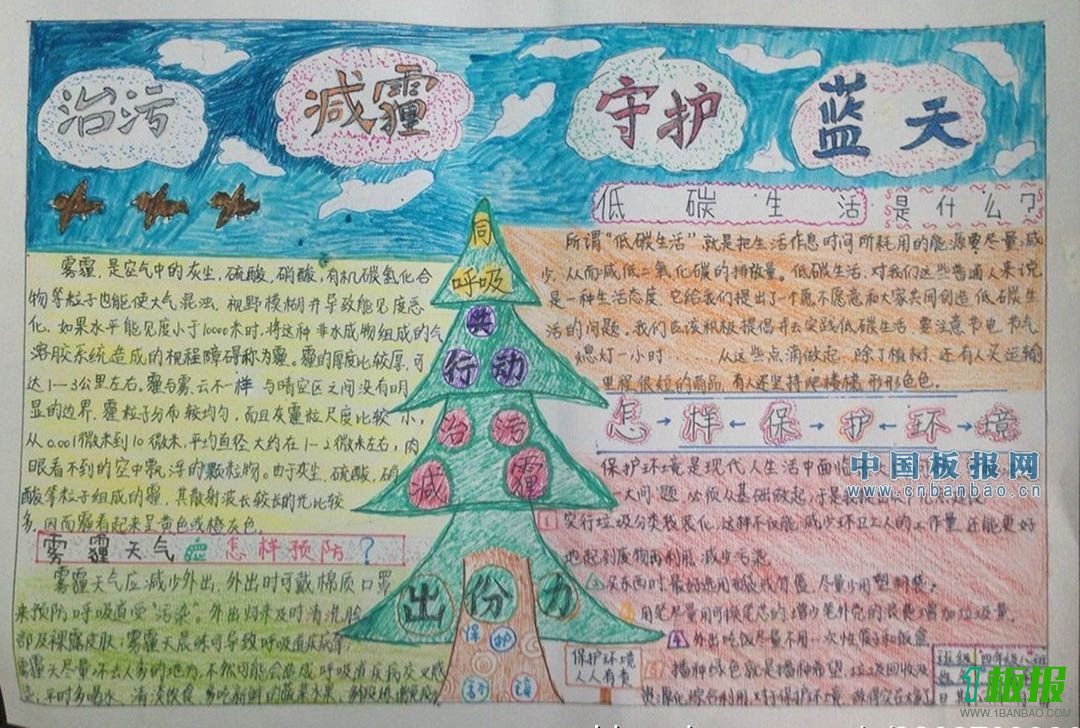 治污
减霾
守护
蓝天
低碳生活是什么?
所谓"低碳生活"就是把生活作息时间所耗用的能源要尽量减
少,从而减低二氧化碳的排放量。低碳生活,对我们这些普通人来说
是一种生活态度,它给我们提出了个愿不愿意和大家共同创造低碳生
活的问题。我们应该积极提倡并去实践低碳生活,要注意节电、节气
熄灯一小时……从这些点滴做起。除了植树,还有人买运输
里程很短的商品,有人还坚持爬楼梯,形形色色。
雾霾,是空气中的灰尘,硫酸,硝酸,有机碳氢化合
物等粒子也能使大气混浊,视野模糊并导致能见度恶
化,如果水平能见度小于10000米时,将这种非水成物组成的气
溶胶系统造成的视程障碍称为霾。霾的厚度比较厚,可
达1-3公里左右。霾与雾、云不一样,与晴空区之间没有明
显的边界,霾粒子分布较均匀,而且灰霾粒尺度比较小,
从0.001微米到10微米,平均直径大约在1-2微米左右,肉
眼看不到的空中飘浮的颗粒物。由于灰尘,硫酸,硝
酸等粒子组成的霾,其散射波长较长的光比较
多,因而霾看起来呈黄色或橙灰色。
同
呼吸
共
行动
治污
减霾
出份力
保护
怎→样←保→护←环→境
保护环境是现代人生活中面临
一大问题,必须从基础做起,于是
中国板报网
www.cnbanbao.cn
1 实行垃圾分类袋装化,这样不仅能减少环卫工人的工作量,还能更好
地起到废物再利用,减少污染
买东西时,最好选用布袋或竹篮,尽量少用塑料袋。
用笔尽量用可换笔芯的,增少笔外壳的浪费增加垃圾量。
4 外出吃饭尽量不用一次性筷子和饭盒
播种绿色就是播种希望,垃圾回收及
雾霾天气应怎样预防?
雾霾天气应减少外出,外出时可戴棉质口罩
来预防呼吸道受"污染"。外出归来及时清洗脸
部及裸露皮肤;雾霾天晨咏可导致呼吸道疾病等
雾霾天尽量不去人多的地方,不然可能会造成呼吸道疾病交叉感
保护环境
人人有责
班级 四年级八班
1板报
WWW.1BANBAO.COM